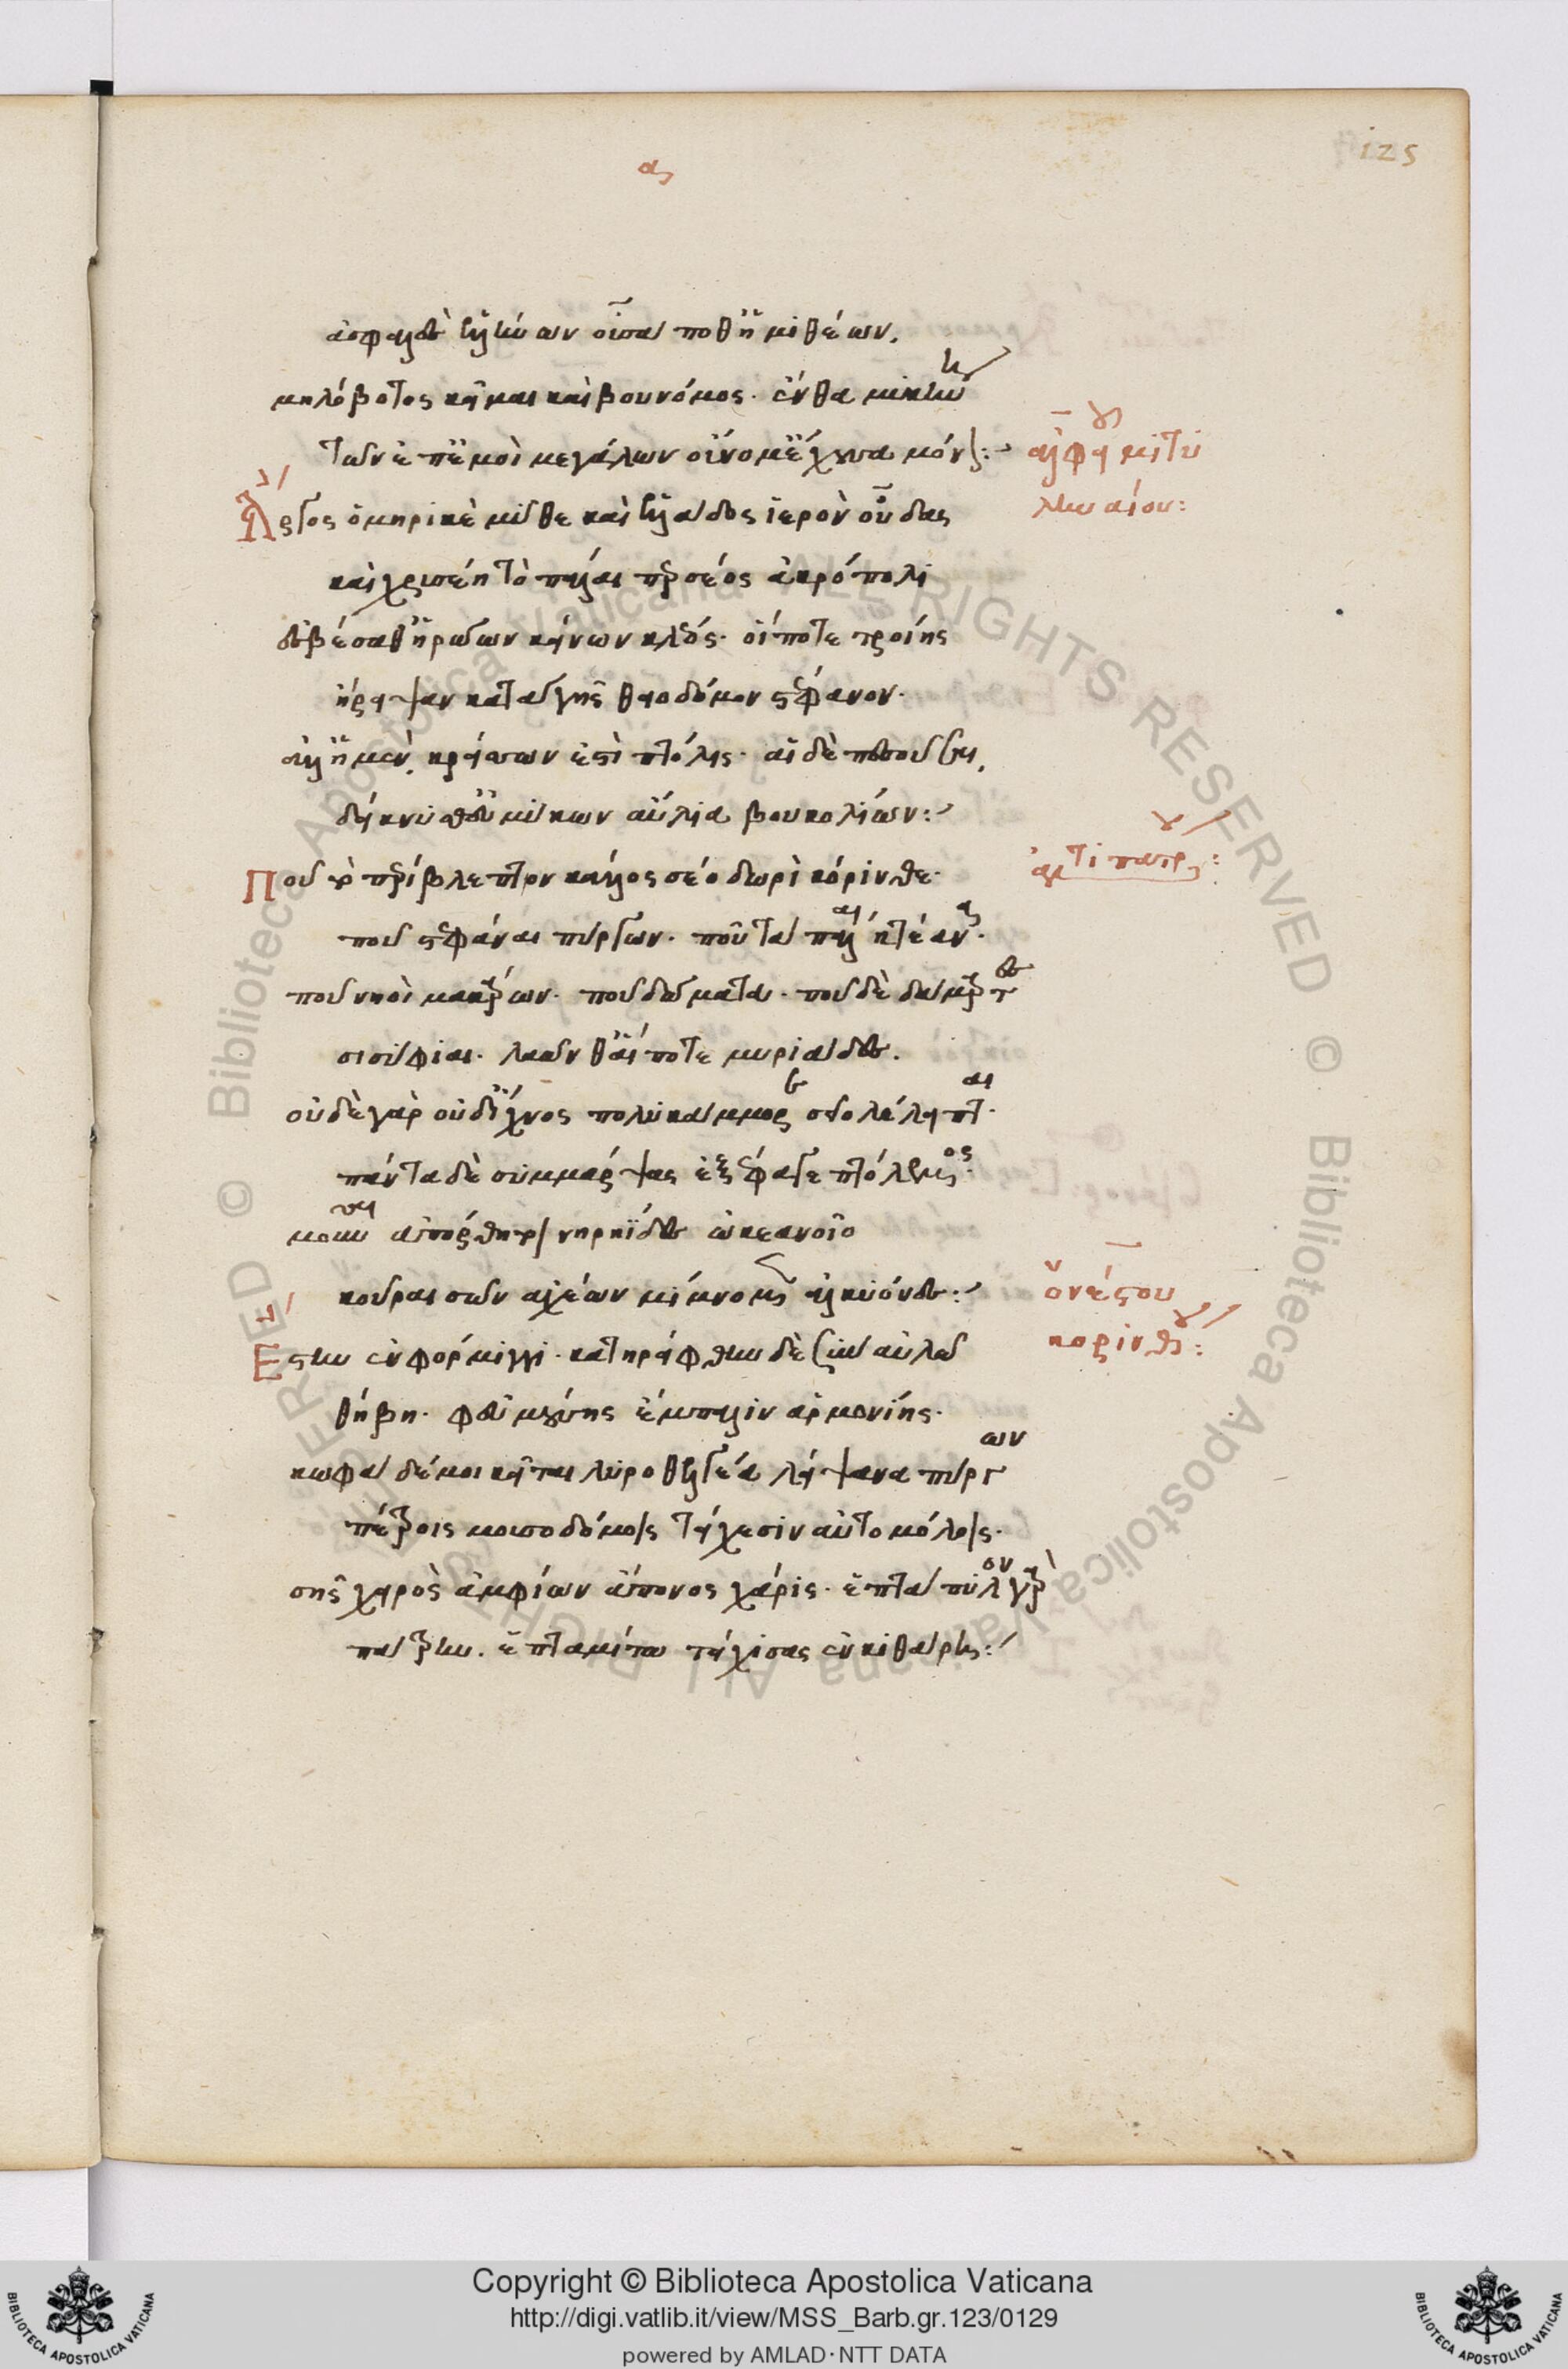 ας
125
ἀσφαλὲς ἑλλήνων οὖσα ποθ' ἡμιθέων.
μηλόβοτος κεῖμαι καὶ βουνόμος· ἔνθα μυκήνη
τῶν ἐπ' ἐμοὶ μεγάλων οὔνομ' ἔχουσα μόνον:
Ἄργος ὁμηρικὲ μῦθε καὶ ἑλλάδος ἱερὸν οὖδας
καὶ χρυσέη τὸ πάλαι περσέος ἀκρόπολι
ἐσβέσαθ' ἡρώων κείνων κλέος· οἵ ποτε τροίης
ἤρειψαν κατὰ γῆς θειοδόμον στέφανον·
ἀλλ' ἡ μὲν κρείσσων ἐστὶ πτόλις· αἱ δὲ πεσοῦσαι,
δείκνυσθ' εὐμύκων αὔλια βουκολίων:
Ποῦ τὸ περίβλεπτον κάλλος σέο δωρὶ κόρινθε·
ποῦ στεφάναι πύργων· ποῦ τὰ πάλαι κτέανα·
ποῦ νηοὶ μακάρων· ποῦ δώματα· ποῦ δὲ δάμαρτες
σισύφιαι· λαῶν θ' αἵ ποτε μυριάδες.
οὐδὲ γὰρ οὐδ' ἴχνος πολυκάμμορε σεῖο λέλειπται·
πάντα δὲ συμμάρψας ἐξέφαγε πτόλεμος·
μοῦναι ἀπόρθητοι νηρηΐδες ὠκεανοῖο
κοῦραι σῶν ἀχέων μίμνομεν ἀλκυόνες:
Ἔστην ἐν φόρμιγγι· κατηρείφθην δὲ σὺν αὐλῷ
θήβη· φεῦ μούσης ἔμπαλιν ἁρμονίης·
κωφὰ δέ μοι κεῖται λυροθελγέα λείψανα πύργων
πέτροις μουσοδόμοις τείχεσιν αὐτομόλοις·
σῆς χειρὸς ἀμφίων ἄπονος χάρις· ἑπτάπυλον γὰρ
πάτρην. ἑπταμίτῳ τείχισας ἐν κιθάρῃ:
ἀλφειοῦ μιτυ
ληναίου:
ἀντιπάτρου:
ὀνέστου
κορινθίου:
Copyright © Biblioteca Apostolica Vaticana
http://digi.vatlib.it/view/MSS_Barb.gr.123/0129
powered by AMLAD·NTT DATA